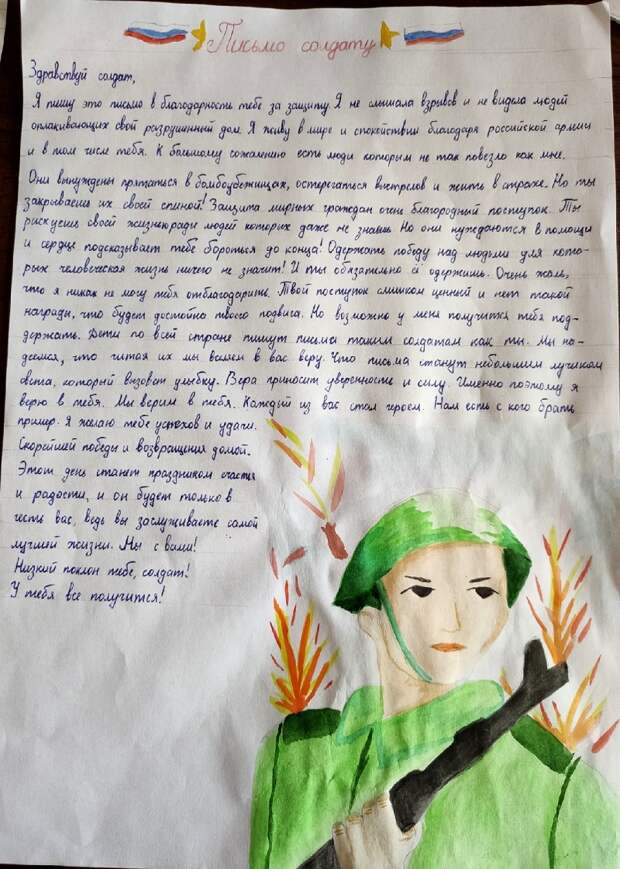 Письмо солдату
Здравствуй солдат,
Я пишу это письмо в благодарность тебе за защиту. Я не слышала взрывов и не видела людей
оплакивающих свой разрушенный дом. Я живу в мире и спокойствии благодаря российской армии
и в том числе тебя. К большому сожалению есть люди которым не так повезло как мне.
Они вынуждены прятаться в бомбоубежищах, остерегаться выстрелов и жить в страхе. Но ты
закрываешь их своей спиной! Защита мирных граждан очень благородный поступок. Ты
рискуешь своей жизнью ради людей которых даже не знаешь. Но они нуждаются в помощи
и сердце подсказывает тебе бороться до конца! Одержать победу над людьми для кото-
рых человеческая жизнь ничего не значит! И ты обязательно её одержишь. Очень жаль,
что я никак не могу тебя отблагодарить. Твой поступок слишком ценный и нет такой
награды, что будет достойна твоего подвига. Но возможно у меня получится тебя под-
держать. Дети по всей стране пишут письма таким солдатам как ты. Мы на-
деемся, что читая их мы вселим в вас веру. Что письма станут небольшим лучиком
света, который вызовет улыбку. Вера приносит уверенность и силу. Именно поэтому я
верю в тебя. Мы верим в тебя. Каждый из вас стал героем. Нам есть с кого брать
пример. Я желаю тебе успехов и удачи.
Скорейшей победы и возвращения домой.
Этот день станет праздником счастья
и радости, и он будет только в
честь вас, ведь вы заслуживаете самой
лучшей жизни. Мы с вами!
Низкий поклон тебе, солдат!
У тебя все получится!